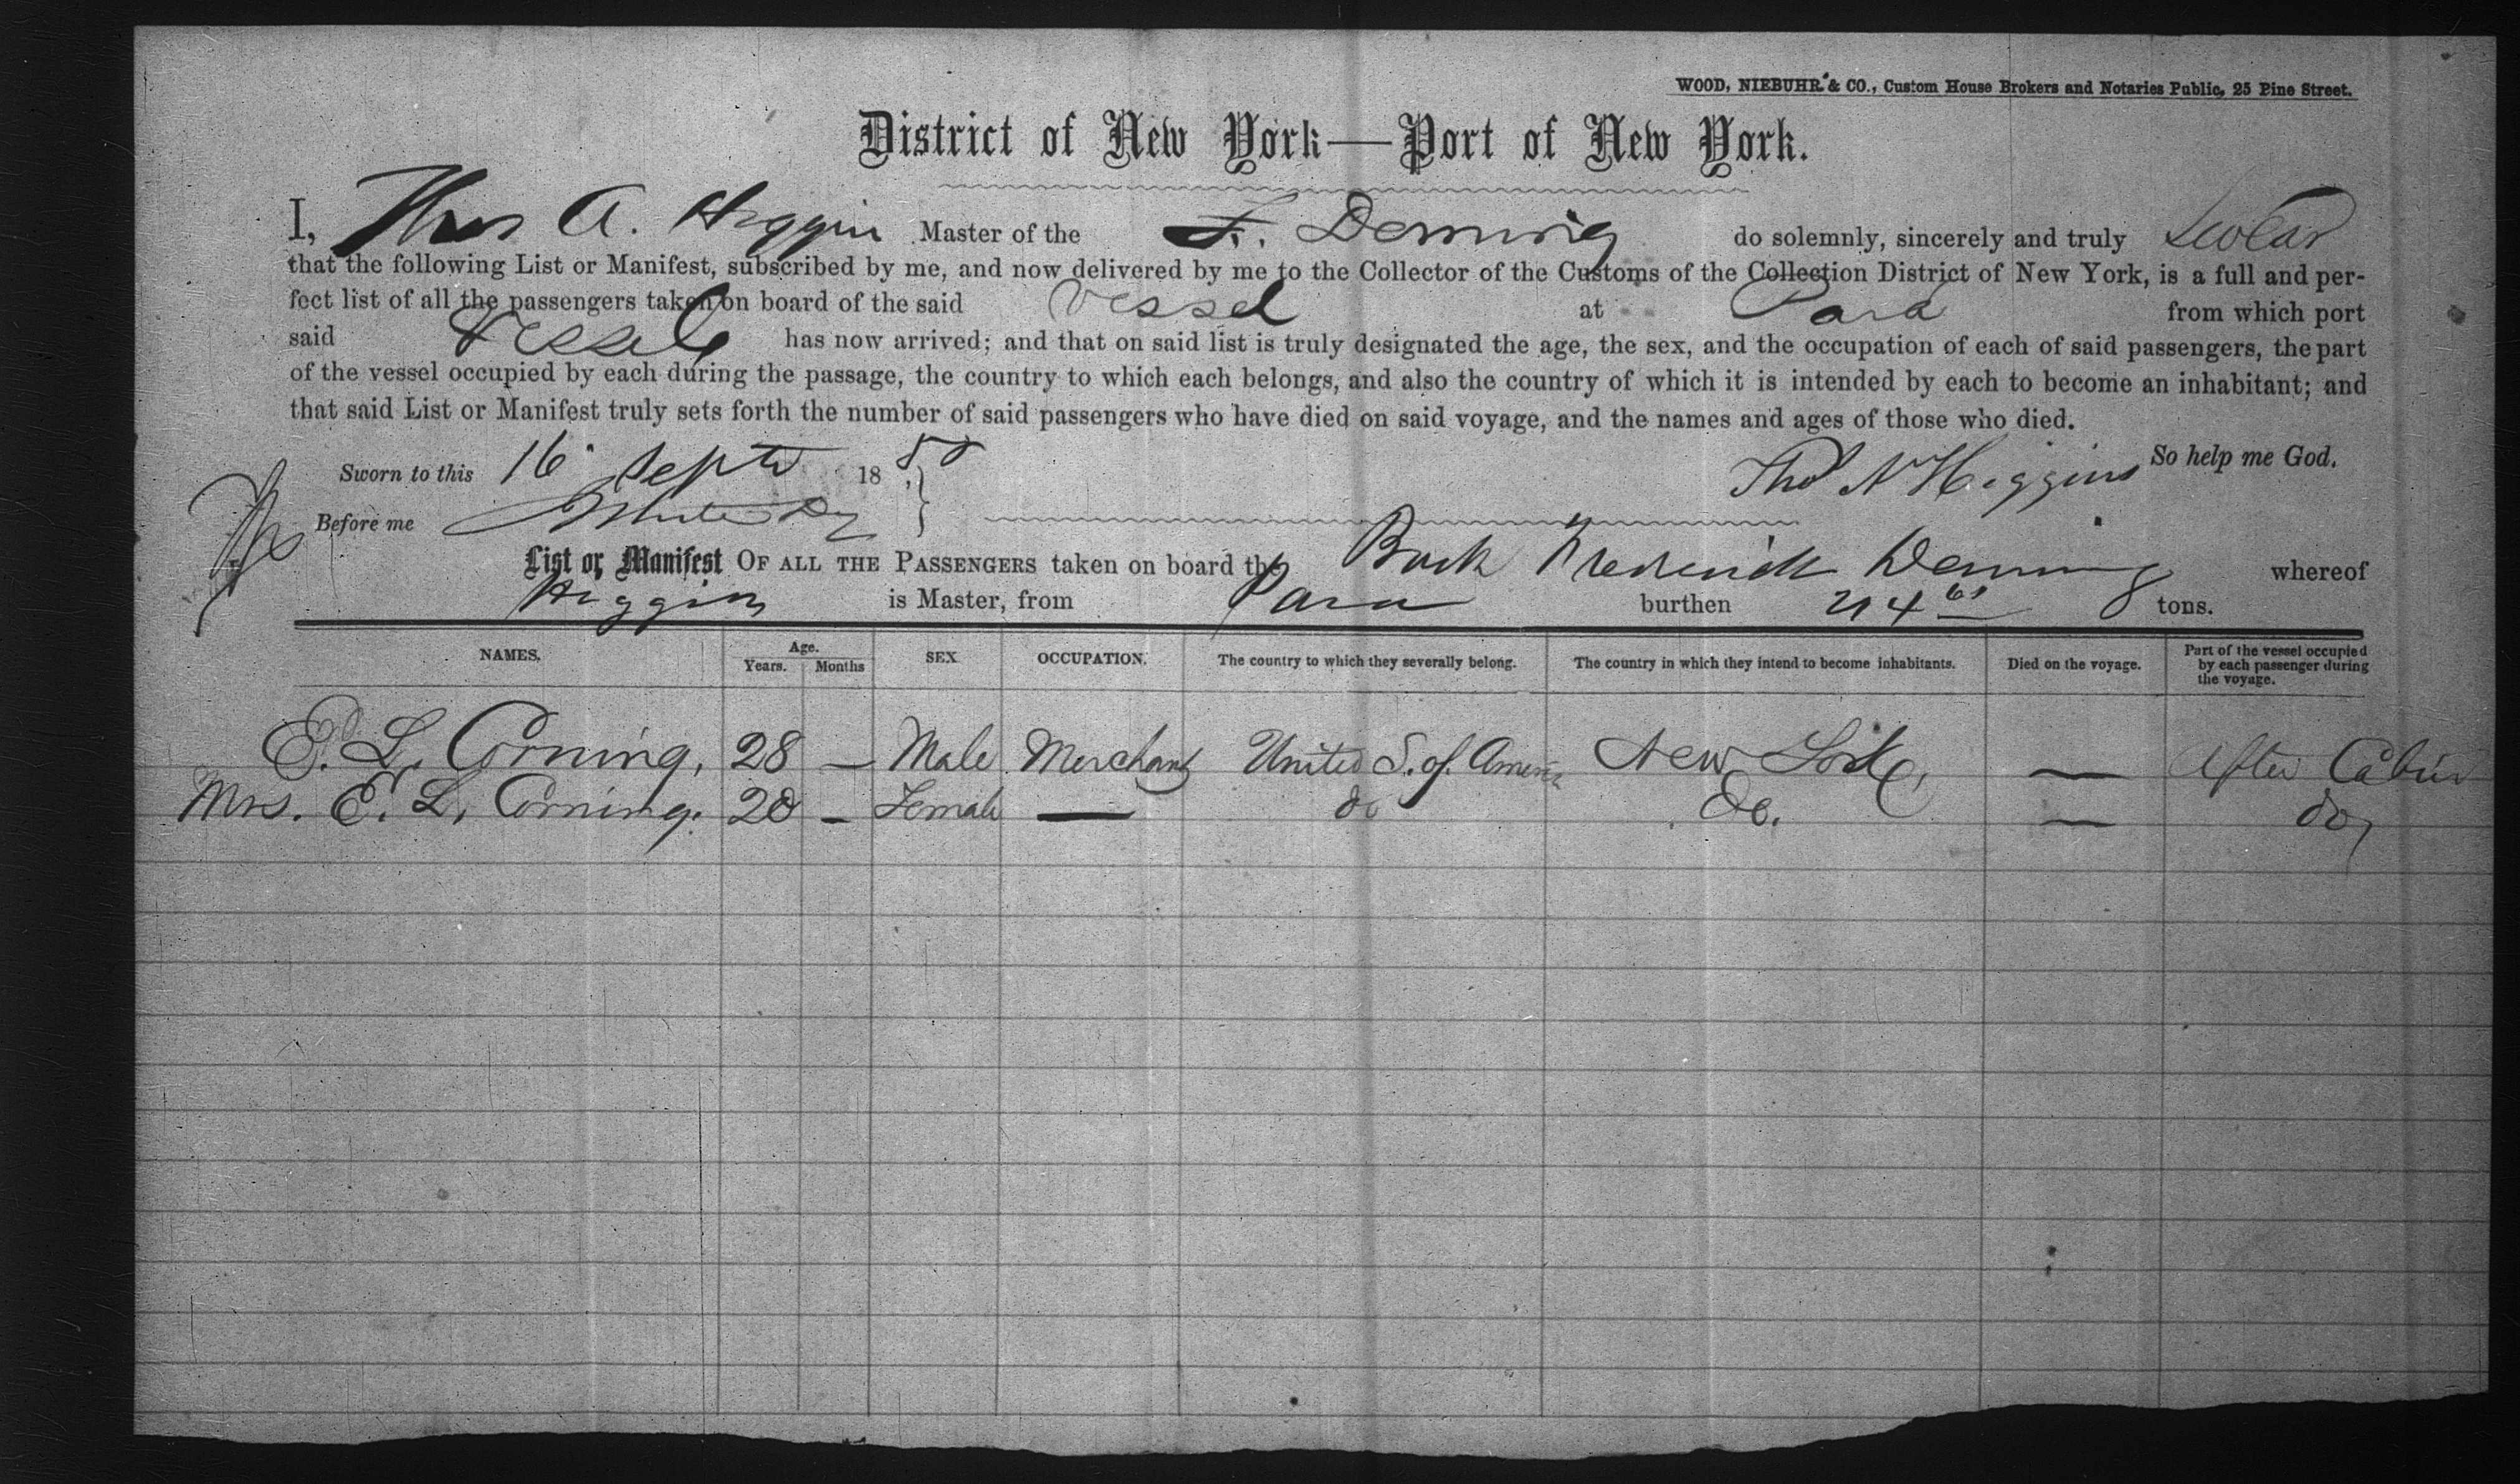 WOOD, NIEBUHR & CO., Custom House Brokers and Notaries Public, 25 Pine Street.
District of New York—Port of New York.
I, Thos A. Higgins Master of the F. Deming do solemnly, sincerely and truly swear
that the following List or Manifest, subscribed by me, and now delivered by me to the Collector of the Customs of the Collection District of New York, is a full and per-
fect list of all the passengers taken on board of the said Vessel at Para from which port
said Vessel has now arrived; and that on said list is truly designated the age, the sex, and the occupation of each of said passengers, the part
of the vessel occupied by each during the passage, the country to which each belongs, and also the country of which it is intended by each to become an inhabitant; and
that said List or Manifest truly sets forth the number of said passengers who have died on said voyage, and the names and ages of those who died.
So help me God.
Sworn to this 16 Septr 18 58 Thos A Higgins
Before me
List or Manifest OF ALL THE PASSENGERS taken on board the Bark Frederick Deming whereof
Higgins is Master, from Para burthen tons.
NAMES. Age. Years. Months SEX OCCUPATION. The country to which they severally belong. The country in which they intend to become inhabitants. Died on the voyage. Part of the vessel occupied by each passenger during the voyage.
E. L. Corning, 28 — Male Merchant United S. of America New York, — After Cabin
Mrs. E. L. Corning. 20 — Female — do Do. — do,